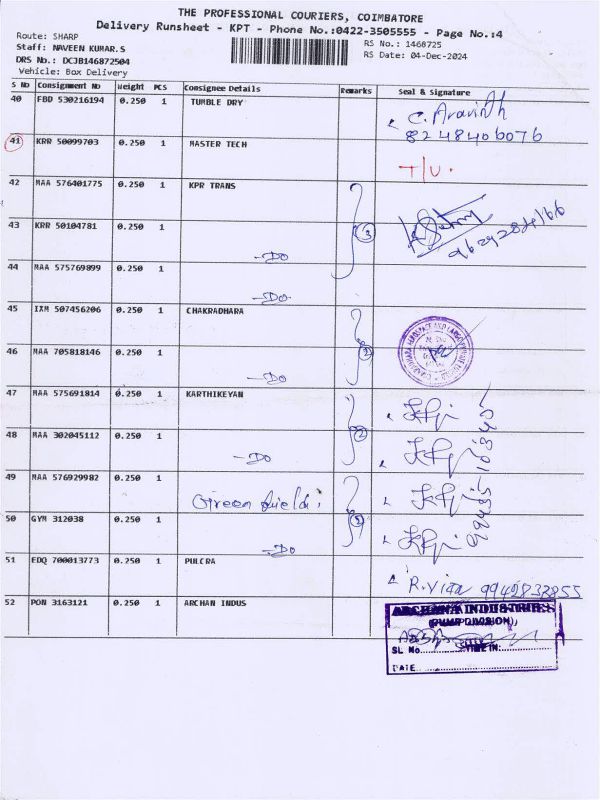 THE PROFESSIONAL COURIERS, COIMBATORE
Delivery Runsheet - KPT - Phone No.:0422-3505555 - Page No.:4
Route: SHARP
RS No.: 1468725
Staff: NAVEEN KUMAR.S
RS Date: 04-Dec-2024
DRS No.: DCJB146872504
Vehicle: Box Delivery
S No Consignment No Weight PCS Consignee Details Remarks Seal & Signature
40 FBD 530216194 0.250 1 TUMBLE DRY C. Aravinth
8248406076
41 KRR 50099703 0.250 1 MASTER TECH T/U.
42 MAA 576401775 0.250 1 KPR TRANS
43 KRR 50104781 0.250 1 -DO 3
44 MAA 575769899 0.250 1 -DO
45 IXM 507456206 0.250 1 CHAKRADHARA
46 MAA 705818146 0.250 1 -DO 2
47 MAA 575691814 0.250 1 KARTHIKEYAN
48 MAA 302045112 0.250 1 -DO 2
49 MAA 576929982 0.250 1 Green
50 GYM 312038 0.250 1 -DO 2
51 EDQ 700013773 0.250 1 PULCRA
52 PON 3163121 0.250 1 ARCHAN INDUS
ARCHANA INDUSTRIES
(PUMP DIVISION)
SL No. TIME IN:
DATE